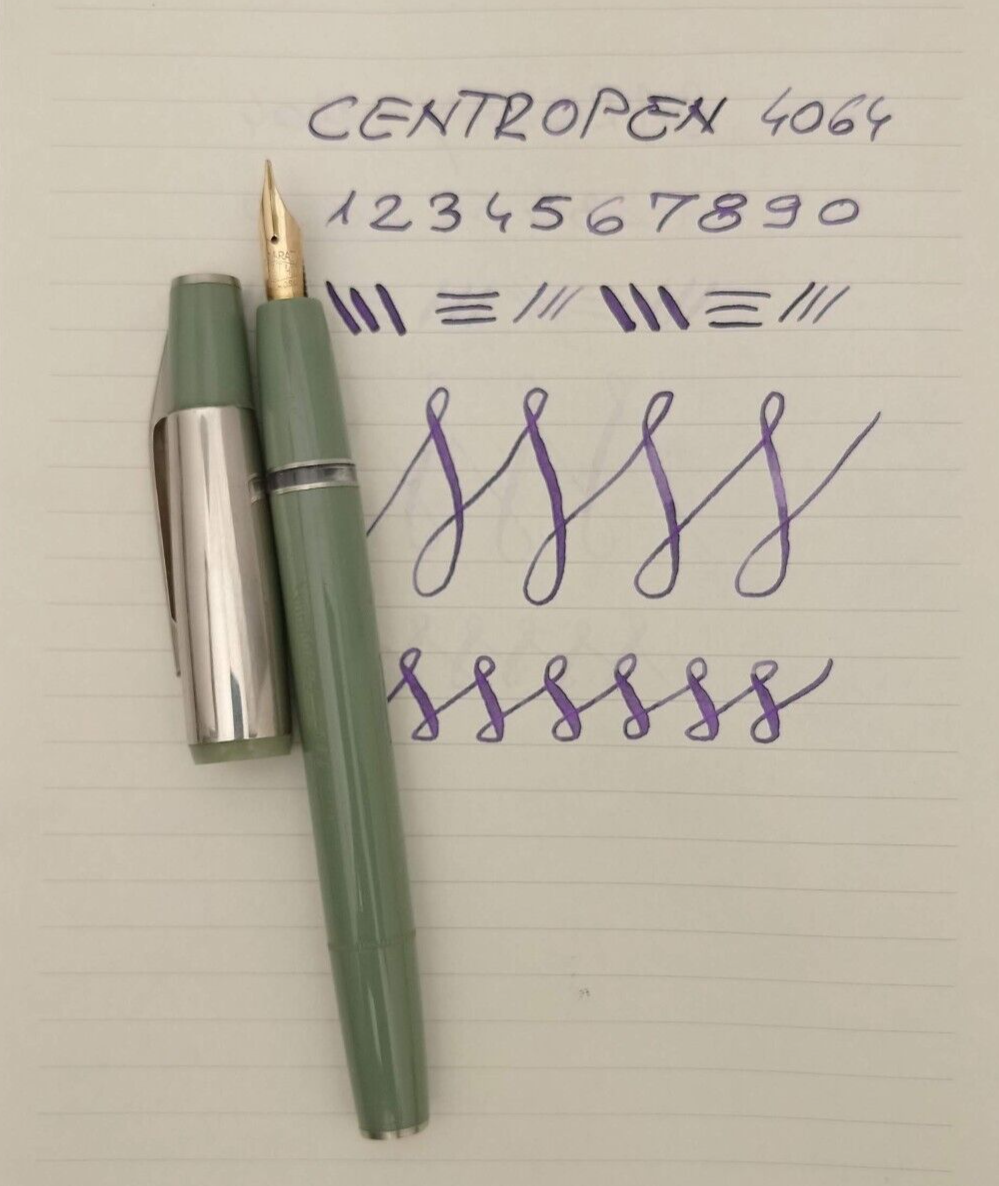 CENTROPEN 4064
1 2 3 4 5 6 7 8 9 0